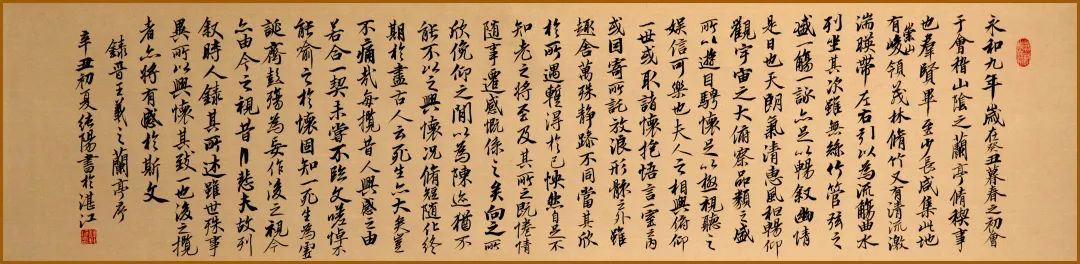 永和九年歲在癸丑暮春之初會
于會稽山陰之蘭亭脩稧事
也群賢畢至少長咸集此地
有崇山峻領茂林脩竹又有清流激
湍暎帶左右引以為流觴曲水
列坐其次雖無絲竹管弦之
盛一觴一詠亦足以暢叙幽情
是日也天朗氣清惠風和暢仰
觀宇宙之大俯察品類之盛
所以遊目騁懷足以極視聽之
娛信可樂也夫人之相與俯仰
一世或取諸懷抱悟言一室之內
或因寄所託放浪形骸之外雖
趣舍萬殊靜躁不同當其欣
於所遇暫得於己怏然自足不
知老之將至及其所之既惓情
隨事遷感慨係之矣向之所
欣俛仰之閒以為陳迹猶不
能不以之興懷況脩短隨化終
期於盡古人云死生亦大矣豈
不痛哉每攬昔人興感之由
若合一契未嘗不臨文嗟悼不
能喻之於懷固知一死生為虛
誕齊彭殤為妄作後之視今
亦由今之視昔悲夫故列
叙時人錄其所述雖世殊事
異所以興懷其致一也後之攬
者亦將有感於斯文
錄晉王羲之蘭亭序
辛丑初夏陽書於湛江